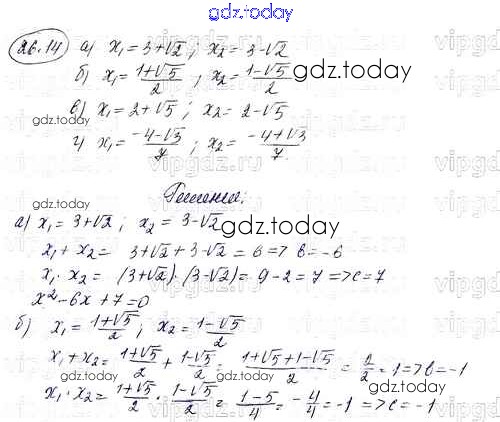 gdz.today
26.14 а) x₁ = 3+√2 ; x₂ = 3-√2
б) x₁ = (1+√5)/2 ; x₂ = (1-√5)/2 gdz.today
в) x₁ = 2+√5 ; x₂ = 2-√5
gdz.today
г) x₁ = (-4-√3)/7 ; x₂ = (-4+√3)/7
Решение:
а) x₁ = 3+√2 ; x₂ = 3-√2
gdz.today
x₁ + x₂ = 3+√2+3-√2 = 6 => b = -6
x₁ · x₂ = (3+√2)·(3-√2) = 9-2 = 7 => c = 7
x²-6x+7=0
gdz.today
б) x₁ = (1+√5)/2 ; x₂ = (1-√5)/2
x₁ + x₂ = (1+√5)/2 + (1-√5)/2 = (1+√5+1-√5)/2 = 2/2 = 1 => b = -1
gdz.today
x₁ · x₂ = (1+√5)/2 · (1-√5)/2 = (1-5)/4 = -4/4 = -1 => c = -1
gdz.today